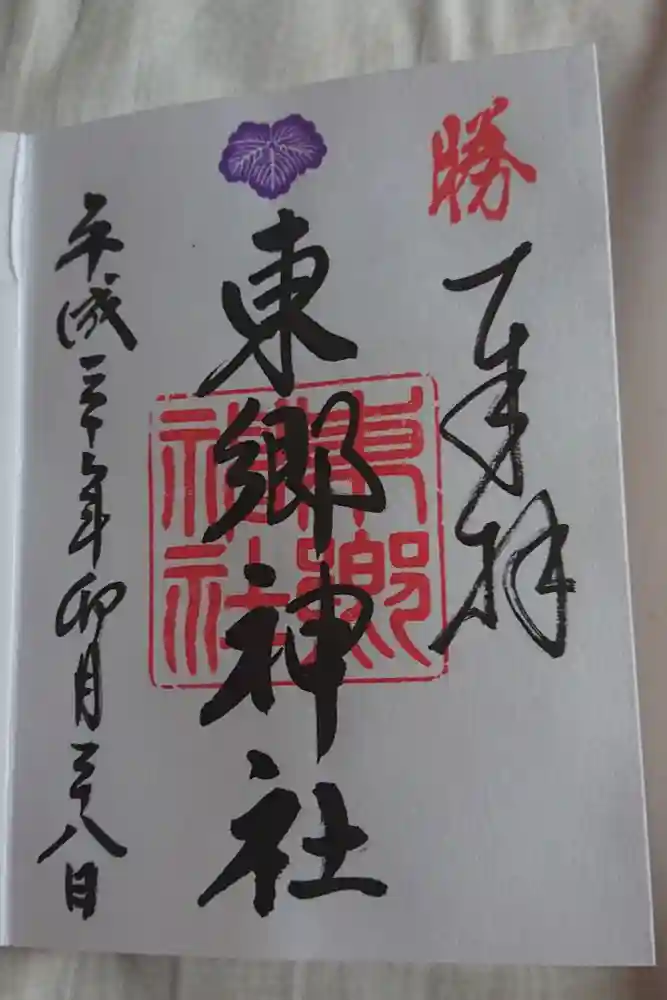 勝
奉拝
東郷神社
東郷
神社
平成二十七年卯月二十八日